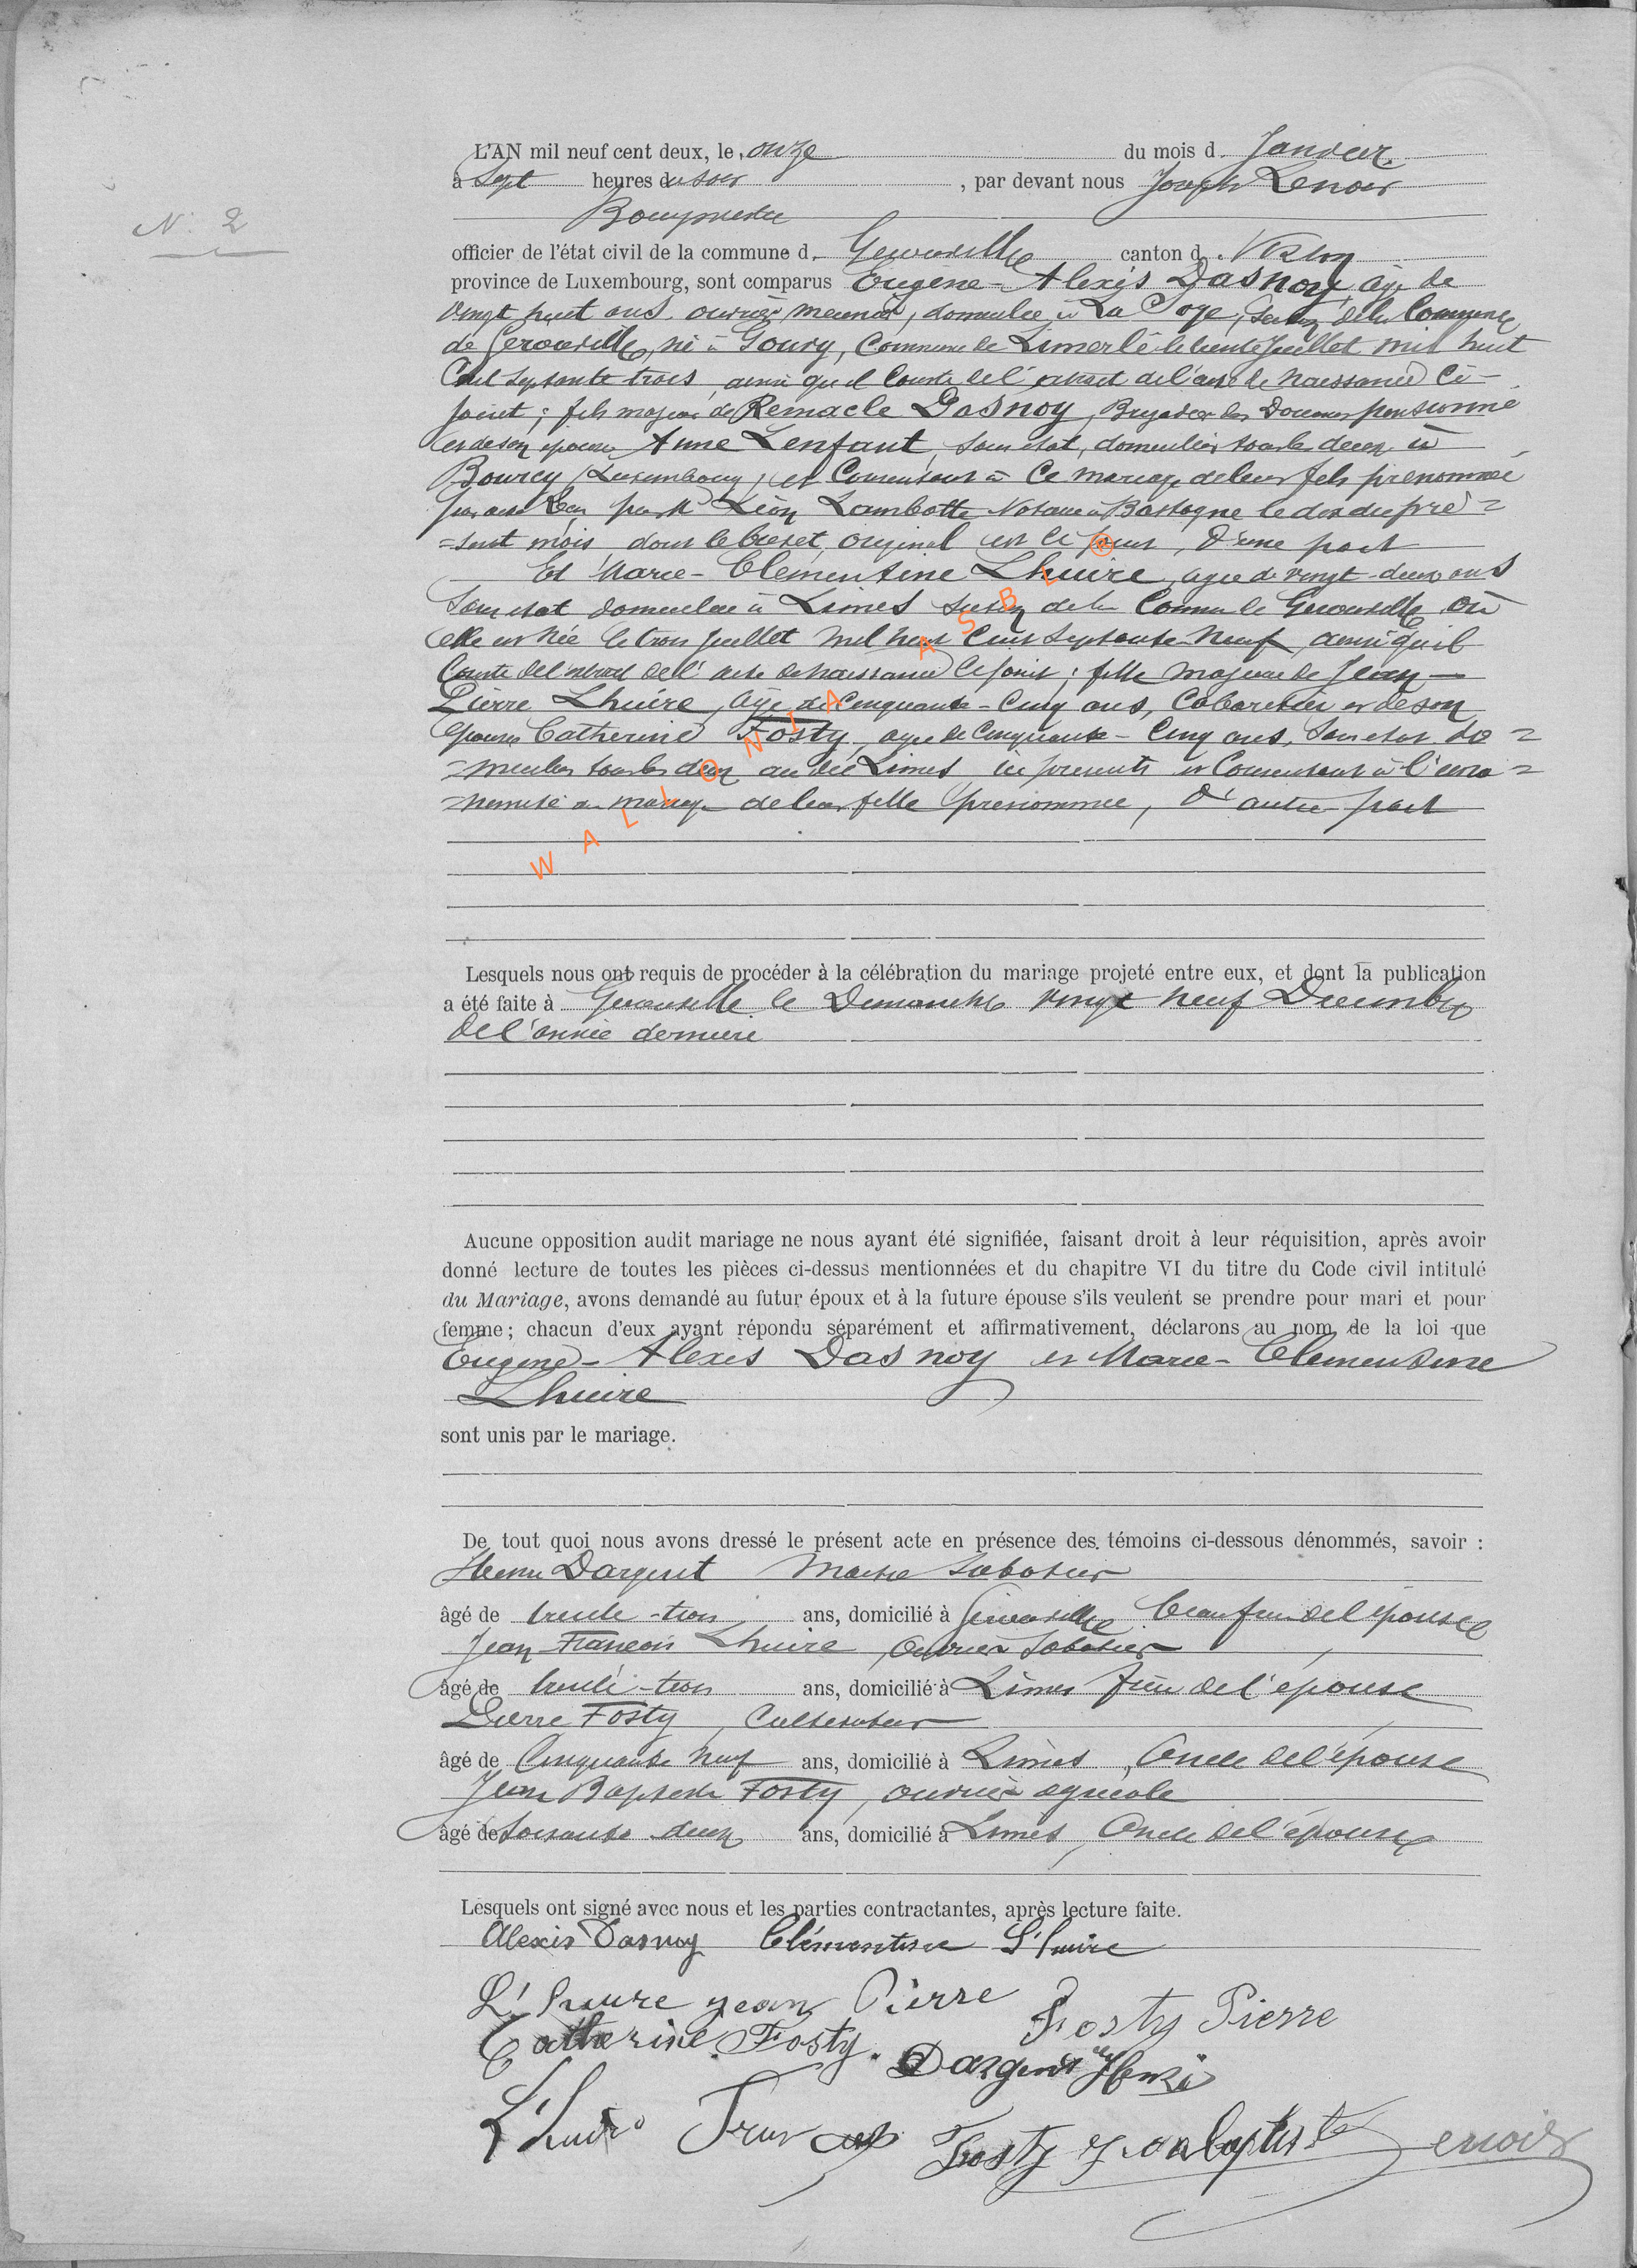 N: 2
L'AN mil neuf cent deux, le onze du mois d Janvier
à Sept heures du soir , par devant nous Joseph Lenoir
Bourgmestre
officier de l'état civil de la commune d Gerouville canton d Virton
province de Luxembourg, sont comparus Eugene-Alexis Dasnoy, âgé de
vingt huit ans, ouvrier meunier, domicilié à La Soye, Section de la Commune
de Gerouville, né à Gouvy, Commune de Limerlé le trente Juillet mil huit
Cent septante trois, ainsi qu'il Conste de l'extrait de l'acte de Naissance Ci-
joint; fils majeur de Remacle Dasnoy, Brigadier des Douanes pensionné
et de son épouse Anne Lenfant, sans état, domiciliés tous les deux à
Bourcy (Luxembourg) et Consentant à Ce mariage de leur fils prénommé
par acte reçu par Me Léon Lambotte Notaire à Bastogne le dix du pré=
=sent mois, dont le brevet original est Ci joint, D'une part
Et Marie-Clementine Lhuire, agée de vingt-deux ans
Sans état domiciliée à Limes section de la Commune de Gerouville où
elle est née le trois Juillet Mil huit Cent Septante Neuf, ainsi qu'il
Conste de l'extrait de l'acte de Naissance Ci joint; fille majeure de Jean-
Pierre Lhuire, âgé de Cinquante-Cinq ans, Cabaretier et de son
épouse Catherine Fosty, agée de Cinquante-Cinq ans, Sans état do=
=miciliés tous les deux au dit Limes, ici présents et Consentant à l'
mariage de leur fille prénommée, D'autre part
WALLONIA ASBL ®
Lesquels nous ont requis de procéder à la célébration du mariage projeté entre eux, et dont la publication
a été faite à Gerouville le Dimanche vingt neuf Decembre
de l'année derniere
Aucune opposition audit mariage ne nous ayant été signifiée, faisant droit à leur réquisition, après avoir
donné lecture de toutes les pièces ci-dessus mentionnées et du chapitre VI du titre du Code civil intitulé
du Mariage, avons demandé au futur époux et à la future épouse s'ils veulent se prendre pour mari et pour
femme; chacun d'eux ayant répondu séparément et affirmativement, déclarons au nom de la loi que
Eugene-Alexis Dasnoy et Marie-Clementine
Lhuire
sont unis par le mariage.
De tout quoi nous avons dressé le présent acte en présence des témoins ci-dessous dénommés, savoir :
Henri Dargent Maitre Sabotier
âgé de trente-trois ans, domicilié à Gerouville Beau frere de l'épouse
Jean-Francois Lhuire, Ouvrier Sabotier
âgé de trente-trois ans, domicilié à Limes frère de l'épouse
Pierre Fosty, Cultivateur
âgé de Cinquante neuf ans, domicilié à Limes, Oncle de l'épouse
Jean Baptiste Fosty, ouvrier agricole
âgé de Soixante deux ans, domicilié à Limes, Oncle de l'épouse
Lesquels ont signé avec nous et les parties contractantes, après lecture faite.
Alexis Dasnoy Clémentine L'huire
L'huire jean Pierre
Fosty Pierre
Catherine Fosty. Dargent Henri
L'huire Francois Fosty jeanbaptiste Lenoir